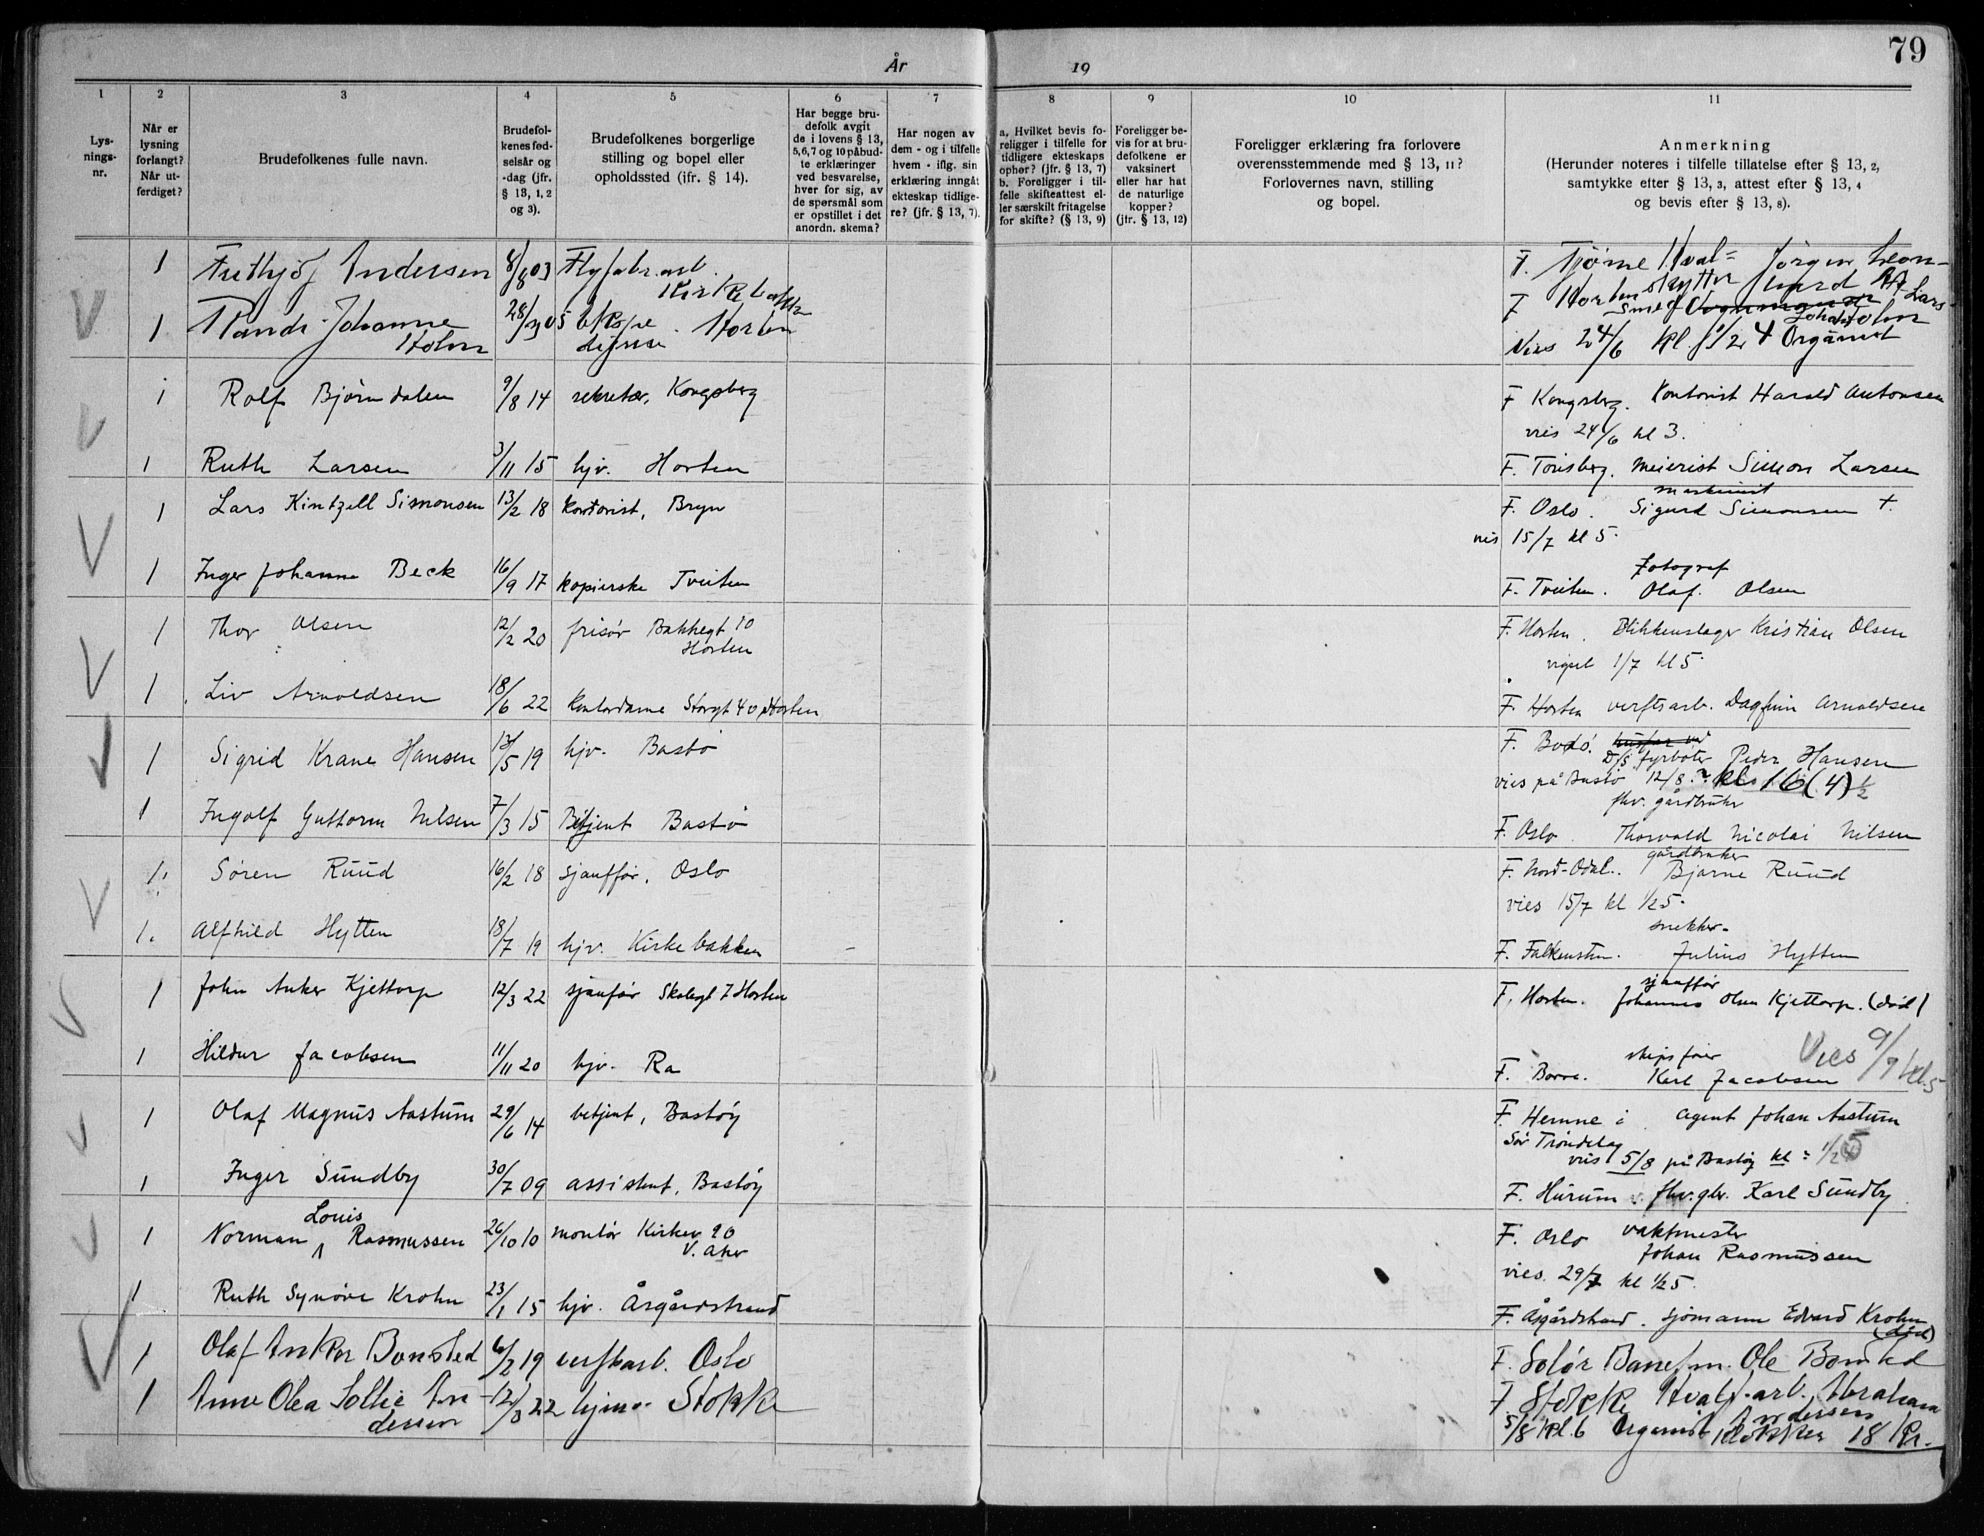 79
År 19
1 2 3 4 5 6 7 8 9 10 11
Lys-
nings-
nr.
Når er
lysning
forlangt?
Når ut-
ferdiget?
Brudefolkenes fulle navn.
Brudefol-
kenes fød-
selsår og
-dag (jfr.
§ 13, 1, 2
og 3).
Brudefolkenes borgerlige
stilling og bopel eller
opholdssted (ifr. § 14).
Har begge bru-
defolk avgit
de i lovens § 13,
5,6,7 og 10 påbud-
te erklæringer
ved besvarelse,
hver for sig, av
de spørsmål som
er opstillet i det
anordn. skema?
Har nogen av
dem - og i tilfelle
hvem - iflg. sin
erklæring inngåt
ekteskap tidlige-
re? (jfr. § 13, 7).
a. Hvilket bevis fo-
religger i tilfelle for
tidligere ekteskaps
ophør? (jfr. § 13, 7)
b. Foreligger i til-
felle skifteattest el-
ler særskilt fritagelse
for skifte? (§ 13, 9)
Foreligger be-
vis for at bru-
defolkene er
vaksinert
eller har hat
de naturlige
kopper?
(jfr. § 13, 12)
Foreligger erklæring fra forlovere
overensstemmende med § 13, 11?
Forlovernes navn, stilling
og bopel.
Anmerkning
(Herunder noteres i tilfelle tillatelse efter § 13, 2,
samtykke efter § 13, 3, attest efter § 13, 4
og bevis efter § 13, 8).
1 Frithjof Andersen 8/8 03 Flyfabr.arb. Kirkebakken F. Tjøme Hval- Jørgen
skytter
1 Johanne 28/ 05 Horten F Horten Smed
Holm Johan Holm
Vies 24/6 kl 1/2 4 Organist
1 Rolf Bjørndalen 9/8 14 sekretær, Kongsberg F Kongsberg. Kontorist Harald Antonsen
vies 24/6 kl 3.
1 Ruth Larsen 3/11 15 hjv. Horten F. Tønsberg. meierist Simon Larsen
1 Lars Kintzell Simonsen 13/2 18 kontorist, Bryn F. Oslo. maskinist Sigurd Simonsen +.
vies 15/7 kl 5.
1 Inger Johanne Beck 16/9 17 kopierske Tveiten F. Tveiten. Fotograf Olaf. Olsen
1 Thor Olsen 12/2 20 frisør Bakkegt 10 Horten F. Horten. Blikkenslager Kristian Olsen
vigsel 1/7 kl 5.
1 Liv Arnoldsen 18/6 22 kontordame Storgt 40 Horten F. Horten verftsarb. Dagfinn Arnoldsen
1 Sigrid Krane Hansen 13/5 19 hjv. Bastø F. Bodø. D/S fyrbøter Peder Hansen
vies på Bastø 12/8. kl. 16 (4) 1/2
1 Ingolf Guttorm Nilsen 7/3 15 Betjent Bastø F. Oslo. fhv. gårdbruker Thorvald Nicolai Nilsen
1 Søren Ruud 16/2 18 sjauffør, Oslo F. Nord-Odal.. gårdbruker Bjarne Ruud
vies 15/7 kl 1/2 5.
1. Alfhild Hytten 18/7 19 hjv. Kirkebakken F. Falkensten. snekker. Julius Hytten
1 John Anker Kjettorp 12/3 22 sjauför Skolegt 7 Horten F. Horten. sjauffør Johannes Olsen Kjettorp. (død)
1 Hildur Jacobsen 11/11 20 hjv. Ra F. Borre. skipsfører Karl Jacobsen
Vies 9/9 kl 5
1 Olaf Magnus Aastum 29/6 14 betjent, Bastøy F. Hemne i agent Johan Aastum
Sør Trøndelag
vies 5/8 på Bastøy kl 1/2 5
1 Inger Sundby 30/7 09 assistent, Bastøy F. Hurum. fhv. gbr. Karl Sundby
1 Norman Louis Rasmussen 26/10 10 montør Kirkev 90 V. Aker F. Oslo vaktmester Johan Rasmussen
vies. 29/7 kl 1/2 5.
1 Ruth Synøve Krohn 23/1 15 hjv. Åsgårdstrand F. Åsgårdstrand. sjømann Edvard Krohn (død)
1 Olaf Anker Bonsted 6/2 19 verftsarb. Oslo F. Solör Banefm. Ole Bonsted
1 Anne Olea Sollie An- 12/3 22 hjmv. Stokke F Stokke Hvalf.arb. Abraham
dersen Andersen
5/8 kl. 6 Organist Klokker 18 Kr.